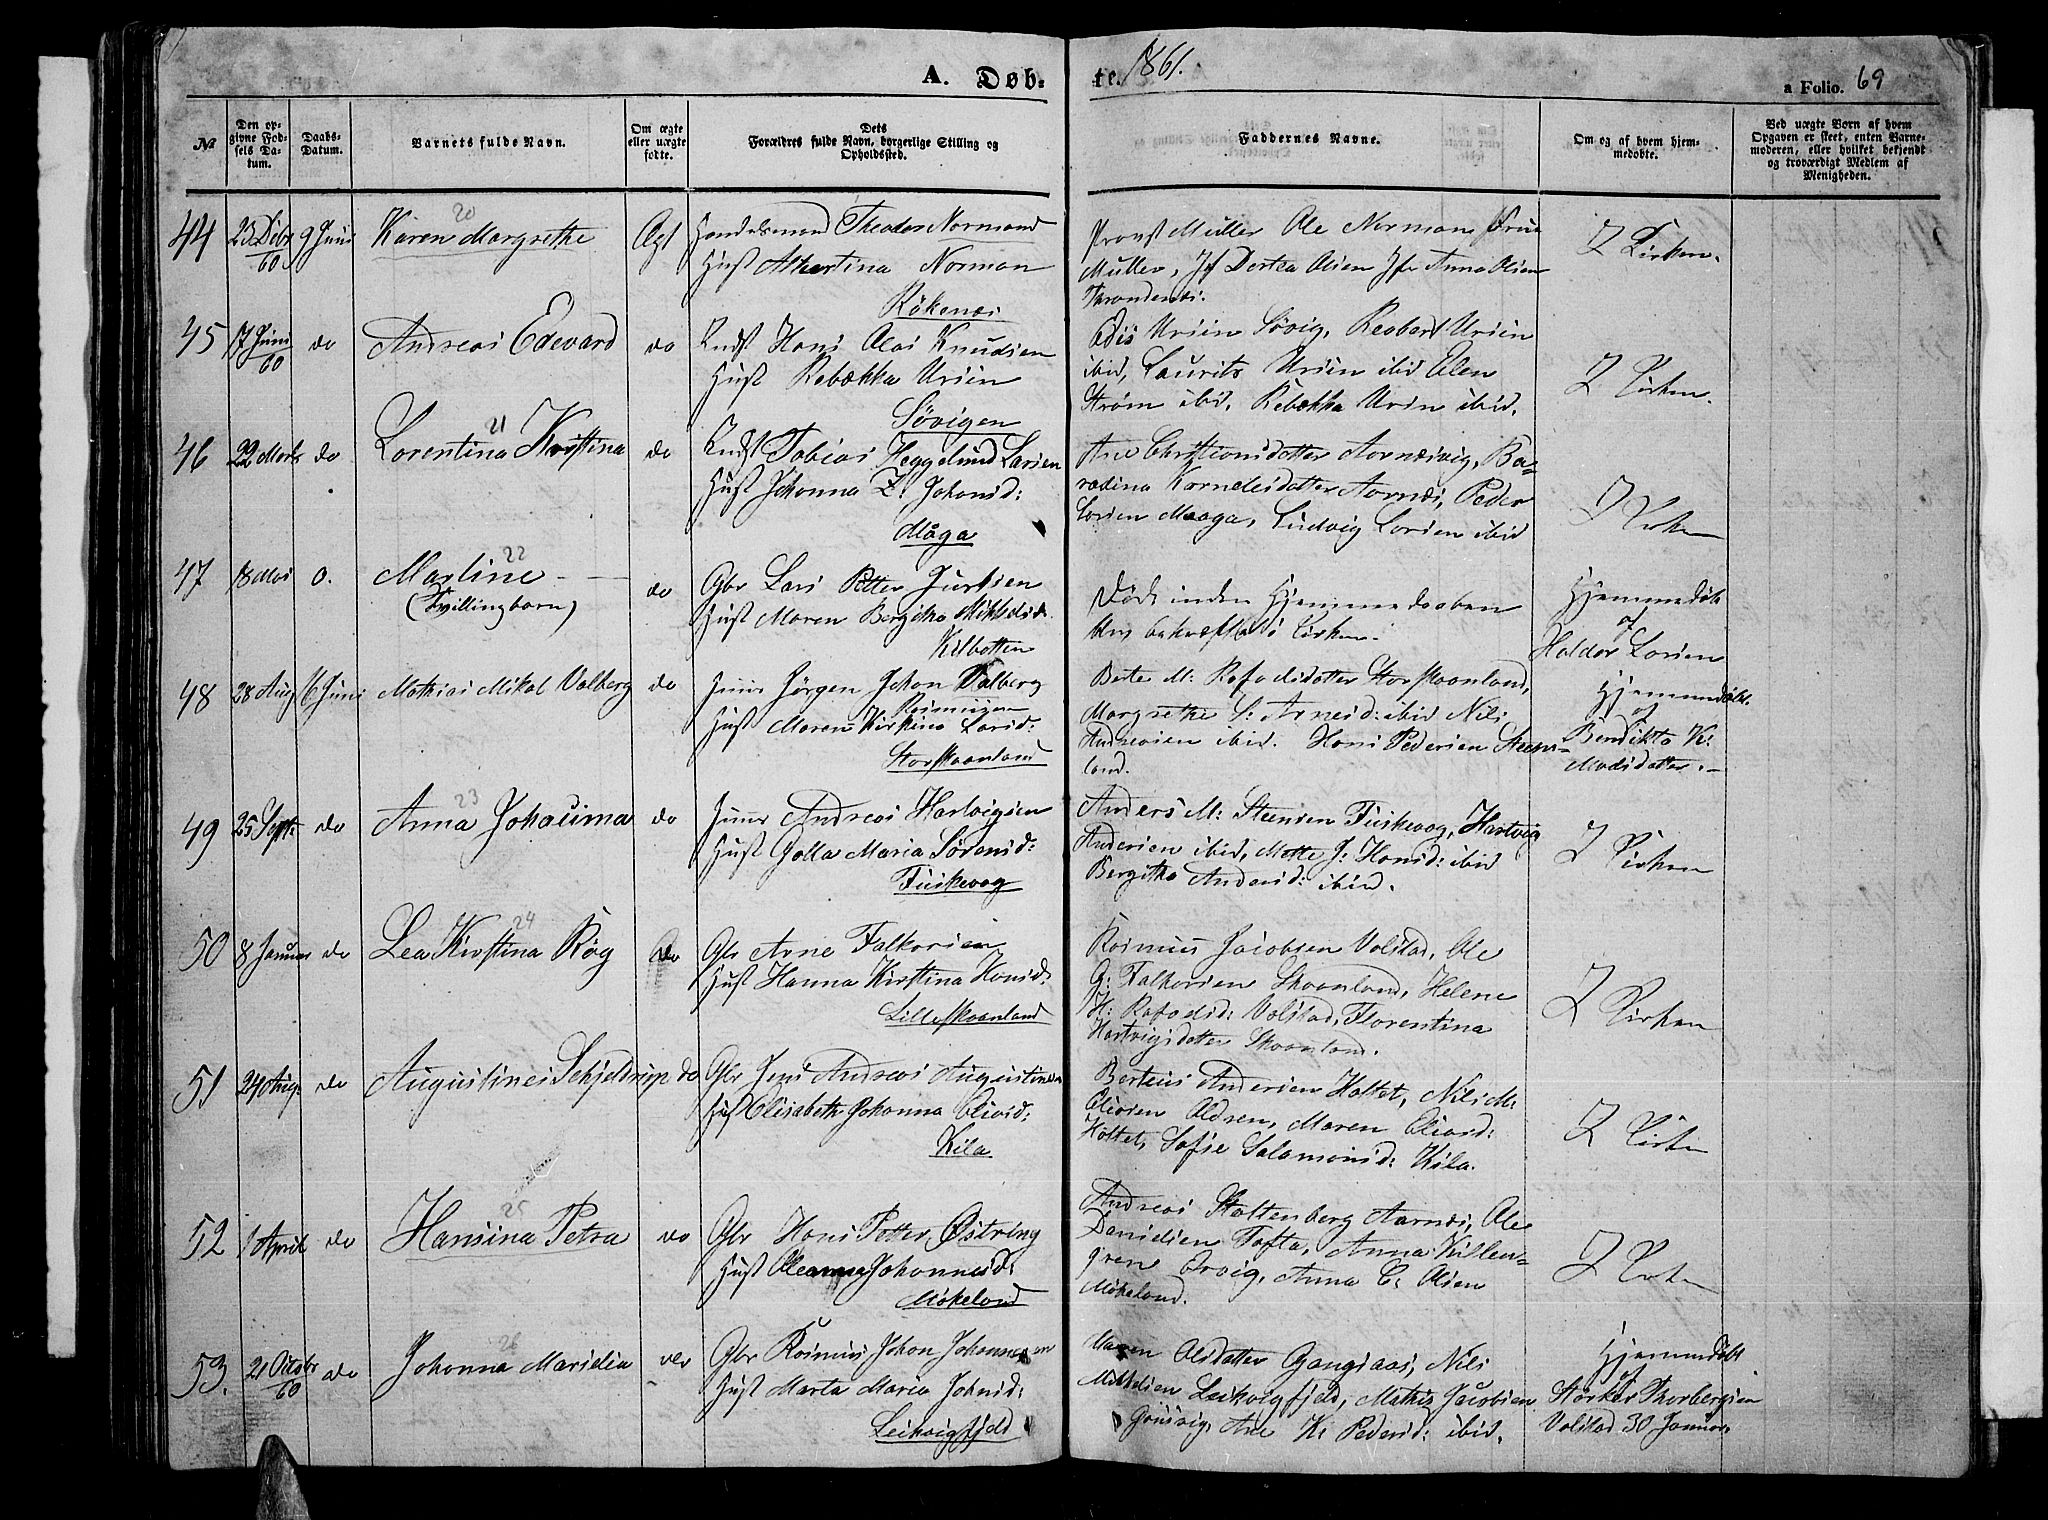 A. Døb-
te. 1861.
a Folio. 69
№
Den op-
givne Fød-
sels Da-
tum.
Daabs-
Datum.
Barnets fulde Navn.
Om ægte
eller uægte
fødte.
Dets
Forældres fulde Navn, borgerlige Stilling og
Opholdssted.
Faddernes Navne.
Om og af hvem hjem-
medøbte.
Ved uægte Børn af hvem
Opgaven er skeet, enten Barne-
moderen, eller hvilket bekjendt
og troværdigt Medlem af
Menigheden.
44
23 Debr
60
9 Juni
20
Karen Margrethe
Ægt
Handelsmand Theodor Normand
Hust Albertina Norman
Rökenæs
Provst Müller Ole Norman Frue
Müller, Jf Dortea Olsen Jfr Anna Olsen
Throndenæs.
I Kirken.
45
17 Juni
60
do
Andreas Edevard
do
Indst Hans Olai Knudsen
Hust Rebækka Ursin
Sövigen
Edis Ursin Sövig, Reobart Ursin
ibid, Laurits Ursin ibid Elen
Ström ibid, Rebækka Ursin ibid.
I Kirken.
46
22 Marts
do
21
Lorentina Kristina
do
Indst Tobias Heggelund Larsen
Hust Johanna Z. Johansd:
Måga
Ane Christiansdatter Aarnæsvig, Be-
redina Kornelisdatter Aarnæs, Peder
Larsen Maaga, Ludvig Larsen ibid
I Kirken
47
18 Mai
o.
22
Martine
(Tvillingbarn)
do
Gbr Lars Petter Justsen
Hust Maren Bergitha Mikkelsd.
Kilbotten
Død inden Hjemmedaaben
blev bekræftet i Kirken.
Hjemmedøbt
af
Haldor Larsen
48
28 Aug
6 Juni
Mathias Mikal Valberg
do
Inds Jörgen Johan Valberg
Rasmussen
Hust Maren Kirstina Larsd:
Storskaanland
Berte M: Rafaelsdatter Storskaanland,
Margrethe S: Arnesd: ibid Nils
Andreasen ibid. Hans Pedersen Steens-
land.
Hjemmedøbt
af
Bendikta K:
Madsdatter.
49
25 Sept:
do
23
Anna Johanna
do
Inds Andreas Hartvigsen
Hust Golla Maria Sörensd:
Fuskevog
Anders M: Steensen Fuskevog, Hartvig
Andersen ibid, Mette J: Hansd: ibid
Bergitha Andersd: ibid.
I Kirken
50
8 Januar
do
24
Lea Kirstina Røg
do
Gbr Arne Falkorsen
Hust Hanna Kirstina Hansd:
Lilleskaanland
Rasmus Jacobsen Volstad, Ole
G: Falkorsen Skaanland, Helene
H: Rafaelsd: Volstad, Florentina
Hartvigsdatter Skaanland.
I Kirken
51
24 Aug.
do
Augustines Schjeldrup
do
Gbr Jens Andreas Augustinsen
Hust Elisabeth Johanna Olausd:
Kila
Berteus Andersen Haltet, Nils M:
Olausen Aldren, Maren Olausd:
Høltet, Sofie Salamonsd: Kila.
I Kirken
52
1 April
do
25
Hansina Petra
do
Gbr Hans Petter Østring
Hust Oleanna Johannesd:
Mökeland
Andreas Stoltenberg Aarnæs, Ole
Danielsen Tofta, Anna Killen-
gren Ervig, Anna C: Olsen
Mökeland.
I Kirken
53.
21 Octobr
60
do
26
Johanna Marselia
do
Gbr Rasmus Johan Johannesen
Hust Marta Maria Johnsd:
Leikvigfjeld
Maren Olsdatter Gangsaas, Nils
Mikkelsen Leikvigfjeld, Mathis Jacobsen
Gausvig, Ane K: Pedersd: ibid.
Hjemmedøbt
af
Störker Thorbergsen
Volstad 30 Januar.